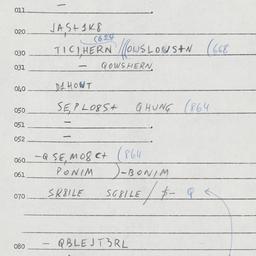 011 –
020 JAST1K8
030 TICIHERN //OWSLOWS+N (668
031 – QOWSHERN
040 D1HOUT
050 SE,PLO8S+ QHUNG (864
051 –
052 –
060 –QSE,MO8C+ (864
061 PONIM )–BONIM
070 SK8ILE SG8ILE / $– Q
080 – QBLEJT3RL